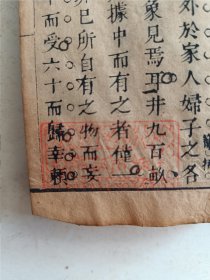 外於家人婦子之各
象見焉耳井九百畝
據中而有之者僅一
非己所自有之物而妄
中而受六十而歸幸賴